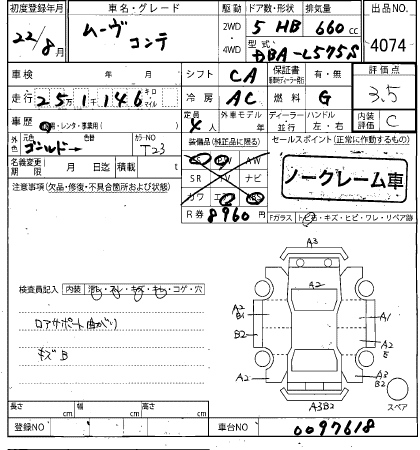 初度登録年月 車名・グレード 駆動 ドア数・形状 排気量 出品No.
22/8月 ムーヴ コンテ 2WD・4WD 5 HB 660cc 4074
型式 DBA-L575S
車検 年 月 シフト CA 保証書 有・無 評価点 3.5
走行 25万1千146 キロ マイル 冷房 AC 燃料 G
車歴 ・レンタ・事業用( ) 定員 4人 外車モデル 年 ディーラー 並行 ハンドル 左・右 内装評価 C
外色 元色 ゴールド→ 色替 カラーNO T23
装備品(純正品に限る) セールスポイント(正常に作動するもの)
名義変更期限 月 日迄 積載 t
AW
SR TV ナビ
カワ
ノークレーム車
注意事項(欠品・修復・不具合箇所および状態)
R券 8960円
Fガラス ・キズ・ヒビ・ワレ・リペア跡
A3
A2
A2 B1
B2
A1
A2
E
A2
A3 B2
A3B2
スペア
検査員記入 内装 ・コゲ・穴
ロアサポート曲がり
キズB
長さ cm 幅 cm 高さ cm
登録NO 車台NO 0097618